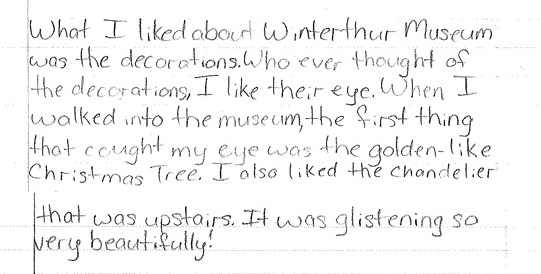 What I liked about Winterthur Museum
was the decorations. Who ever thought of
the decorations, I like their eye. When I
walked into the museum, the first thing
that caught my eye was the golden-like
Christmas Tree. I also liked the chandelier
that was upstairs. It was glistening so
very beautifully!